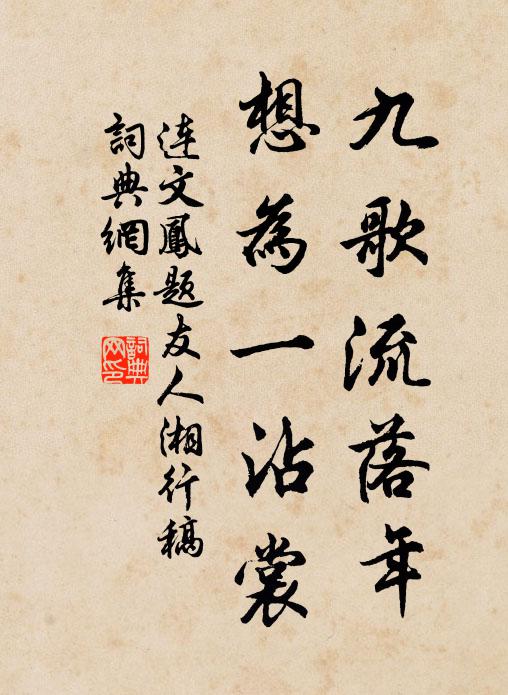 九歌流落年
想為一沾裳
連文鳳題友人湘行稿
詞典網集
詞典网印